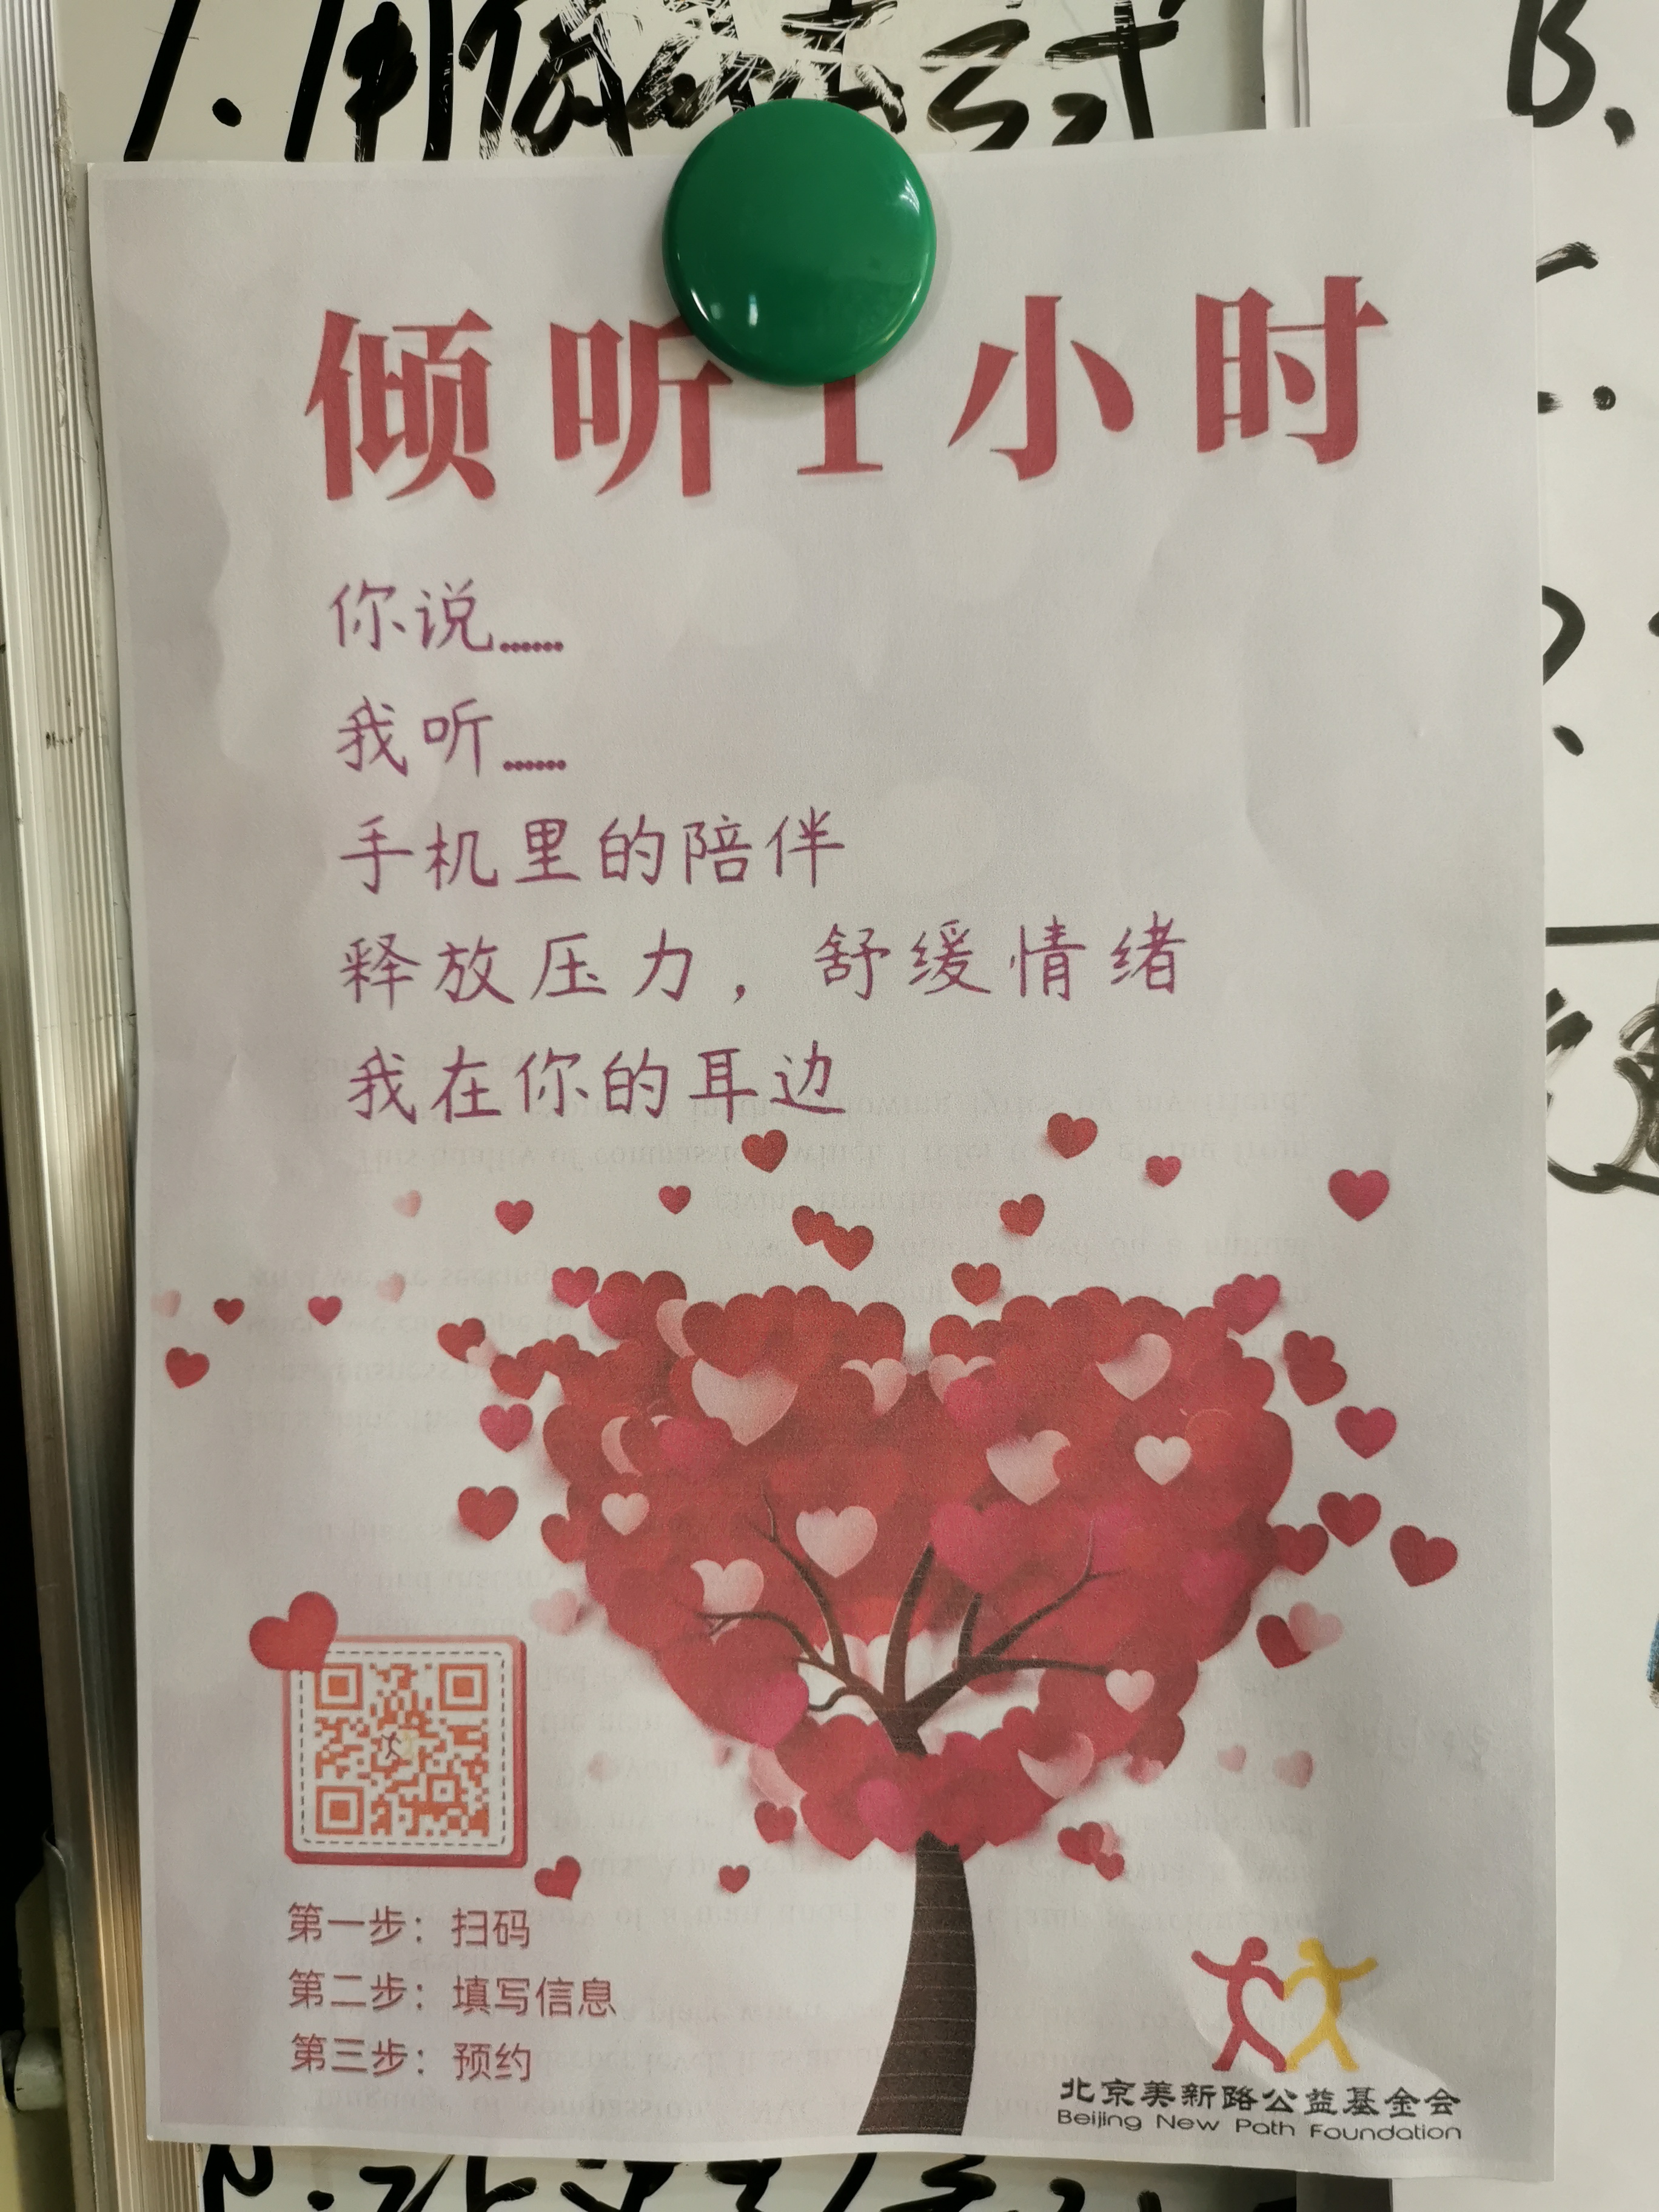 倾听1小时
你说……
我听……
手机里的陪伴
释放压力，舒缓情绪
我在你的耳边
第一步：扫码
第二步：填写信息
第三步：预约
北京美新路公益基金会
Beijing New Path Foundation
B、